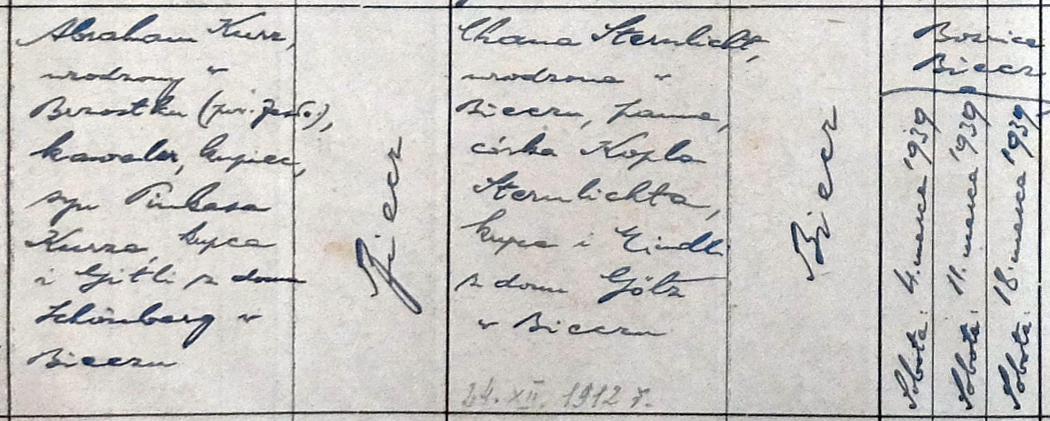 Abraham Kurz,
urodzony w
Brzostku (pow. Jasło),
kawaler, kupiec,
syn Pinkasa
Kurza, kupca
i Gitli z domu
Schönberg w
Bieczu
Biecz
Chana Sternlicht,
urodzona w
Bieczu, panna,
córka Kopla
Sternlichta,
kupca i Eindli
z domu Götz
w Bieczu
24. XII. 1912 r.
Biecz
Bożnica
Biecz
Sobota: 4. marca 1939
Sobota: 11. marca 1939
Sobota: 18. marca 1939